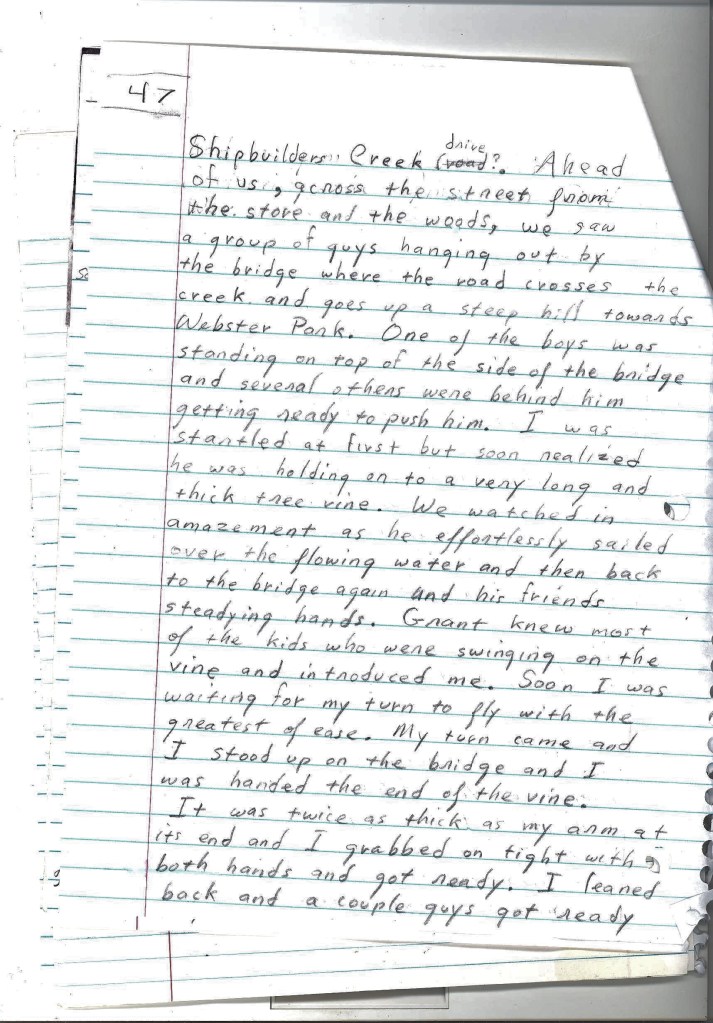 47
drive
Shipbuilders Creek (road?. Ahead
of us, across the street from
the store and the woods, we saw
a group of guys hanging out by
the bridge where the road crosses the
creek and goes up a steep hill towards
Webster Park. One of the boys was
standing on top of the side of the bridge
and several others were behind him
getting ready to push him. I was
startled at first but soon realized
he was holding on to a very long and
thick tree vine. We watched in
amazement as he effortlessly sailed
over the flowing water and then back
to the bridge again and his friends
steadying hands. Grant knew most
of the kids who were swinging on the
vine and introduced me. Soon I was
waiting for my turn to fly with the
greatest of ease. My turn came and
I stood up on the bridge and I
was handed the end of the vine.
It was twice as thick as my arm at
its end and I grabbed on tight with
both hands and got ready. I leaned
back and a couple guys got ready